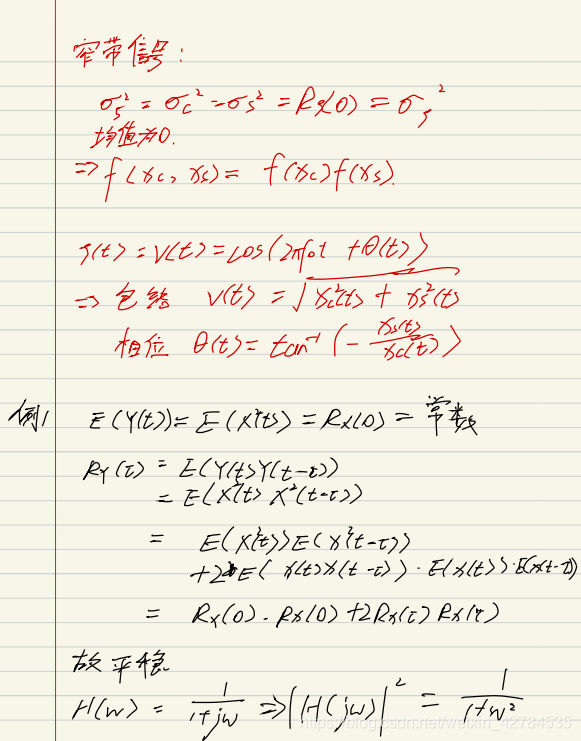 窄带信号:
σξ² = σc² = σs² = Rξ(0) = σξ²
均值为0.
⇒ f(xc, xs) = f(xc)f(xs).
ξ(t) = V(t) = cos(2πf0t + θ(t))
⇒ 包络 V(t) = √(xc²(t) + xs²(t))
相位 θ(t) = tan⁻¹(- xs(t)/xc(t))
例1 E(Y(t)) = E(X²(t)) = Rx(0) = 常数
RY(τ) = E(Y(t)Y(t-τ))
= E(X²(t) X²(t-τ))
= E(X²(t))E(X²(t-τ))
+2E(X(t)X(t-τ)) · E(X(t)) · E(X(t-τ))
= Rx(0) · Rx(0) + 2Rx(τ) Rx(τ)
故平稳
H(w) = 1/(1+jw) ⇒ |H(jw)|² = 1/(1+w²)
https://blog.csdn.net/weixin_42784535